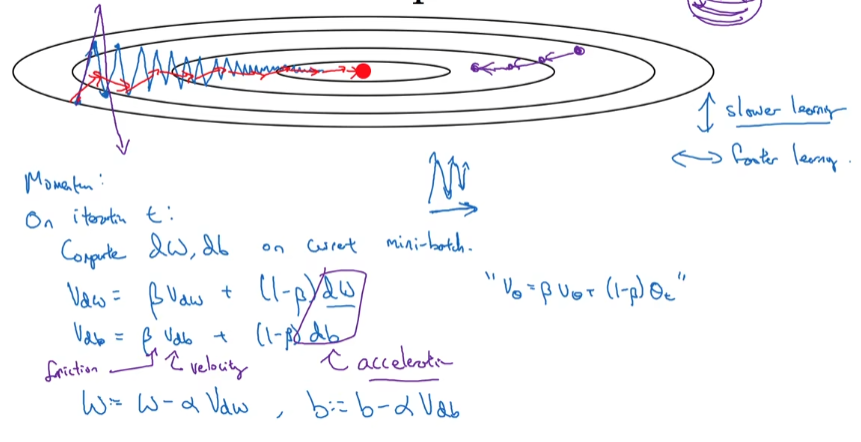 slower learning
faster learning.
Momentum:
On iteration t:
Compute dW, db on current mini-batch.
V_dW = β V_dW + (1-β) dW
"V_θ = β V_θ + (1-β) θ_t"
V_db = β V_db + (1-β) db
friction velocity acceleration
W := W - α V_dW , b := b - α V_db